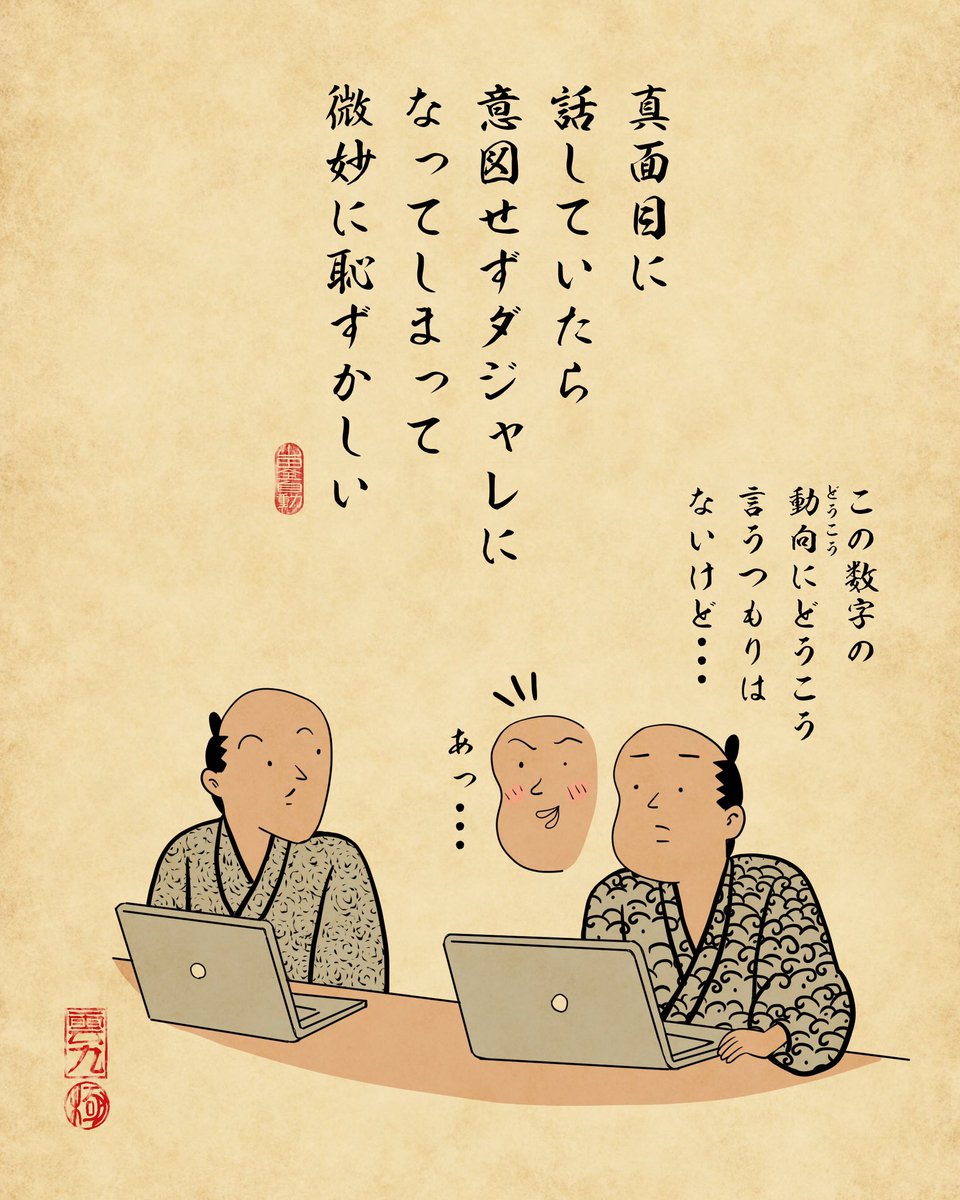 真面目に
話していたら
意図せずダジャレに
なってしまって
微妙に恥ずかしい
この数字の
どうこう
動向にどうこう
言うつもりは
ないけど・・・
あっ・・・